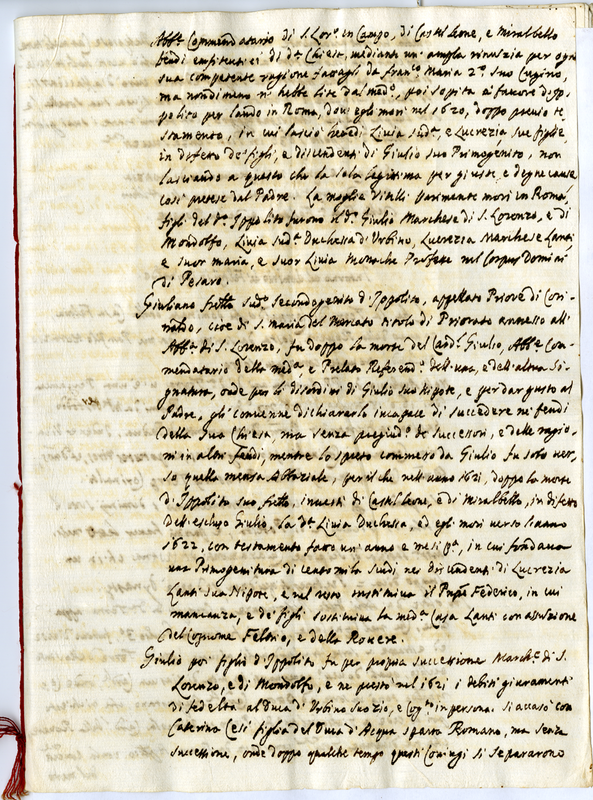 Abb.e Commendatario di S. Lor.o in Campo, di Castel leone, e Mirabello
feudi enfiteutici di d.a Chiesa, mediante un'ampla rinuzia per ogni
sua competente ragione fattagli da fran.co Maria 2.o suo Cugino,
ma nondimeno n'hebbe lite dal med.o, poi sopita à favore d'Ip-
polito per laudo in Roma, dove egli morì nel 1620, doppo previo te-
stamento, in cui lasciò heredi Livia sud.a, e Lucrezia sue figlie,
in difetto de' figli, e discendenti di Giulio suo Primogenito, non
lasciando à questo che la sola legitima per giuste, e degne cause
così pretese dal Padre. La moglie Vitelli parimente morì in Roma,
figli del d.o Ippolito furono il d.o Giulio Marchese di S. Lorenzo, e di
Mondolfo, Livia sud.a Duchessa d'Urbino, Lucrezia Marchese Lanti
e suor maria, e suor Livia Monache Professe nel Corpus Domini
di Pesaro.
Giuliano frello sud.o secondogenito d'Ippolito, appellato Priore di Cori-
naldo, cioè di S. maria del Mercato titolo di Priorato annesso all'
Abb.a di S. Lorenzo, fu doppo la morte del Card.l Giulio, Abb.e Com-
mendatario della med.a, e Prelato Referend.o dell'una, e dell'altra Si-
gnatura, onde per li disordini di Giulio suo nipote, e per dar gusto al
Padre, gli convenne dichiararlo incapace di succedere ne' feudi
della sua Chiesa, ma senza pregiud.o de' successori, e delle ragio-
ni in altri feudi, mentre lo spreto commesso da Giulio fu solo ver-
so quella mensa Abbaziale, per il che nell'anno 1621, doppo la morte
d'Ippolito suo frello, investì di Castel leone, e di Mirabello, in difetto
dell'escluso Giulio, la d.a Livia Duchessa, ed egli morì verso l'anno
1622, con testamento fatto un'anno e mesi p.a, in cui fondava
una Primogenitura di cento mila scudi nei discendenti di Lucrezia
Lanti sua Nipote, e nel resto sustituiva il Prnpe Federico, in cui
mancanza, e de' figli sustituiva la med.a Casa Lanti con assunzione
del Cognome Feltrio, e della Rovere.
Giulio poi figlio d'Ippolito fu per propria successione March.e di S.
Lorenzo, e di Mondolfo, e ne prestò nel 1621 i debiti giuramenti
di fedeltà al Duca d'Urbino suo zio, e Cog.to in persona. Si accasò con
Caterina Cesi figlia del Duca d'Acqua sparta Romano, ma senza
successione, onde doppo qualche tempo questi Coniugi si separarono